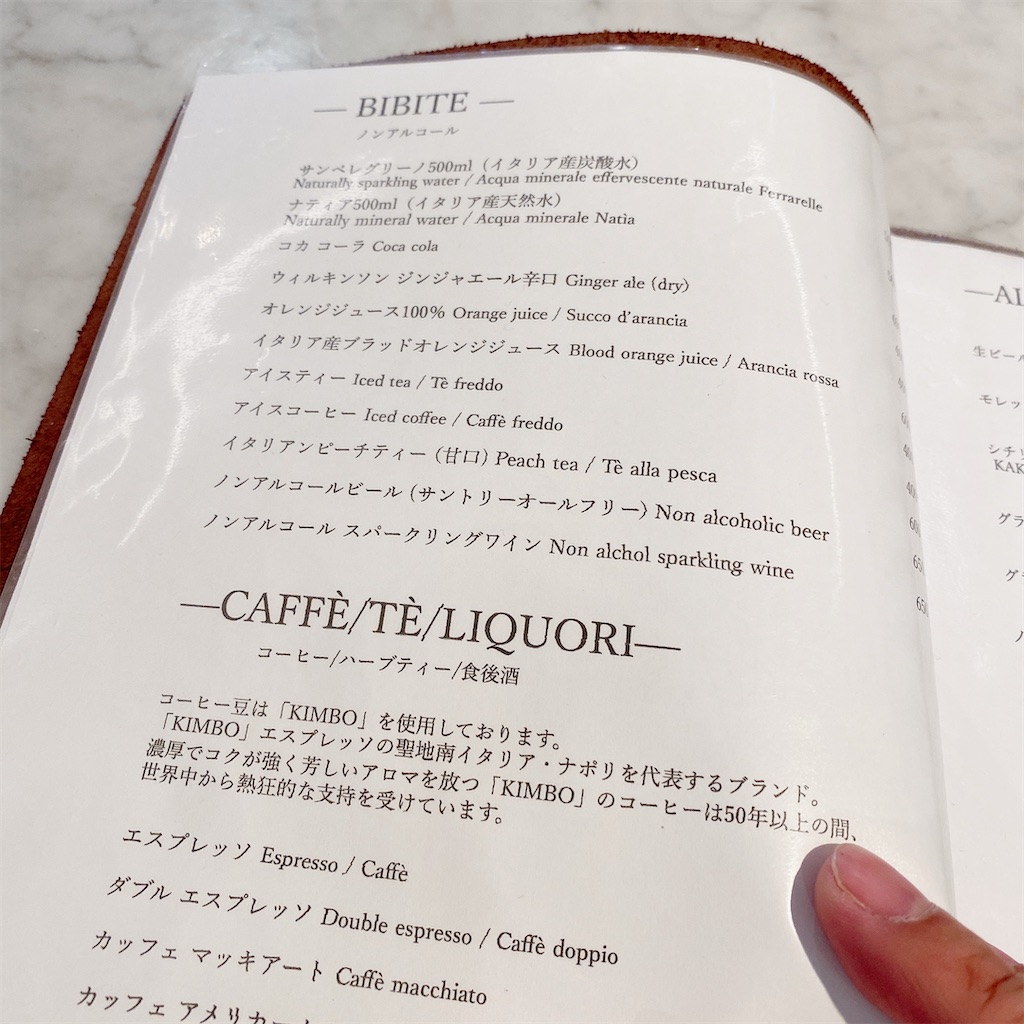 — BIBITE —
ノンアルコール
サンペレグリーノ500ml（イタリア産炭酸水）
Naturally sparkling water / Acqua minerale effervescente naturale Ferrarelle
ナティア500ml（イタリア産天然水）
Naturally mineral water / Acqua minerale Natìa
コカ コーラ Coca cola
ウィルキンソン ジンジャエール辛口 Ginger ale (dry)
オレンジジュース100% Orange juice / Succo d'arancia
イタリア産ブラッドオレンジジュース Blood orange juice / Arancia rossa
アイスティー Iced tea / Tè freddo
アイスコーヒー Iced coffee / Caffè freddo
イタリアンピーチティー (甘口) Peach tea / Tè alla pesca
ノンアルコールビール (サントリーオールフリー) Non alcoholic beer
ノンアルコール スパークリングワイン Non alchol sparkling wine
—CAFFÈ/TÈ/LIQUORI—
コーヒー/ハーブティー/食後酒
コーヒー豆は「KIMBO」を使用しております。
「KIMBO」エスプレッソの聖地南イタリア・ナポリを代表するブランド。
濃厚でコクが強く芳しいアロマを放つ「KIMBO」のコーヒーは50年以上の間、
世界中から熱狂的な支持を受けています。
エスプレッソ Espresso / Caffè
ダブル エスプレッソ Double espresso / Caffè doppio
カッフェ マッキアート Caffè macchiato
カッフェ アメリカー
—AL
生ビール
モレッ
シチリ
KAK
グラ
グラ